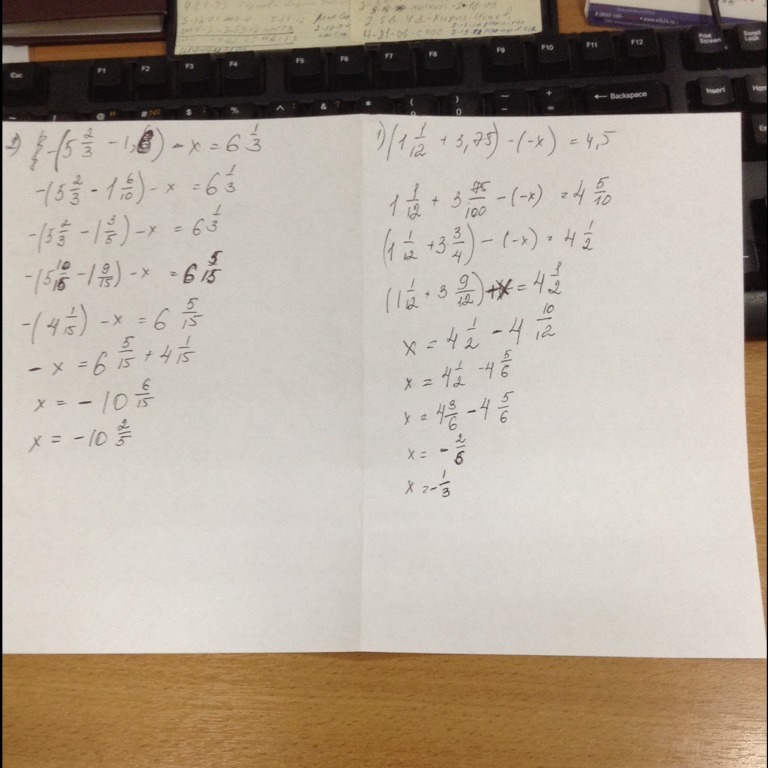 Esc F1 F2 F3 F4 F5 F6 F7 F8 F9 F10 F11 F12 Print Screen Scroll Lock
← Backspace Insert
2) -(5 2/3 - 1,6) - x = 6 1/3
-(5 2/3 - 1 6/10) - x = 6 1/3
-(5 2/3 - 1 3/5) - x = 6 1/3
-(5 10/15 - 1 9/15) - x = 6 5/15
-(4 1/15) - x = 6 5/15
- x = 6 5/15 + 4 1/15
x = - 10 6/15
x = -10 2/5
1) (1 1/12 + 3,75) - (-x) = 4,5
1 1/12 + 3 75/100 - (-x) = 4 5/10
(1 1/12 + 3 3/4) - (-x) = 4 1/2
(1 1/12 + 3 9/12) + x = 4 1/2
x = 4 1/2 - 4 10/12
x = 4 1/2 - 4 5/6
x = 4 3/6 - 4 5/6
x = - 2/6
x = - 1/3